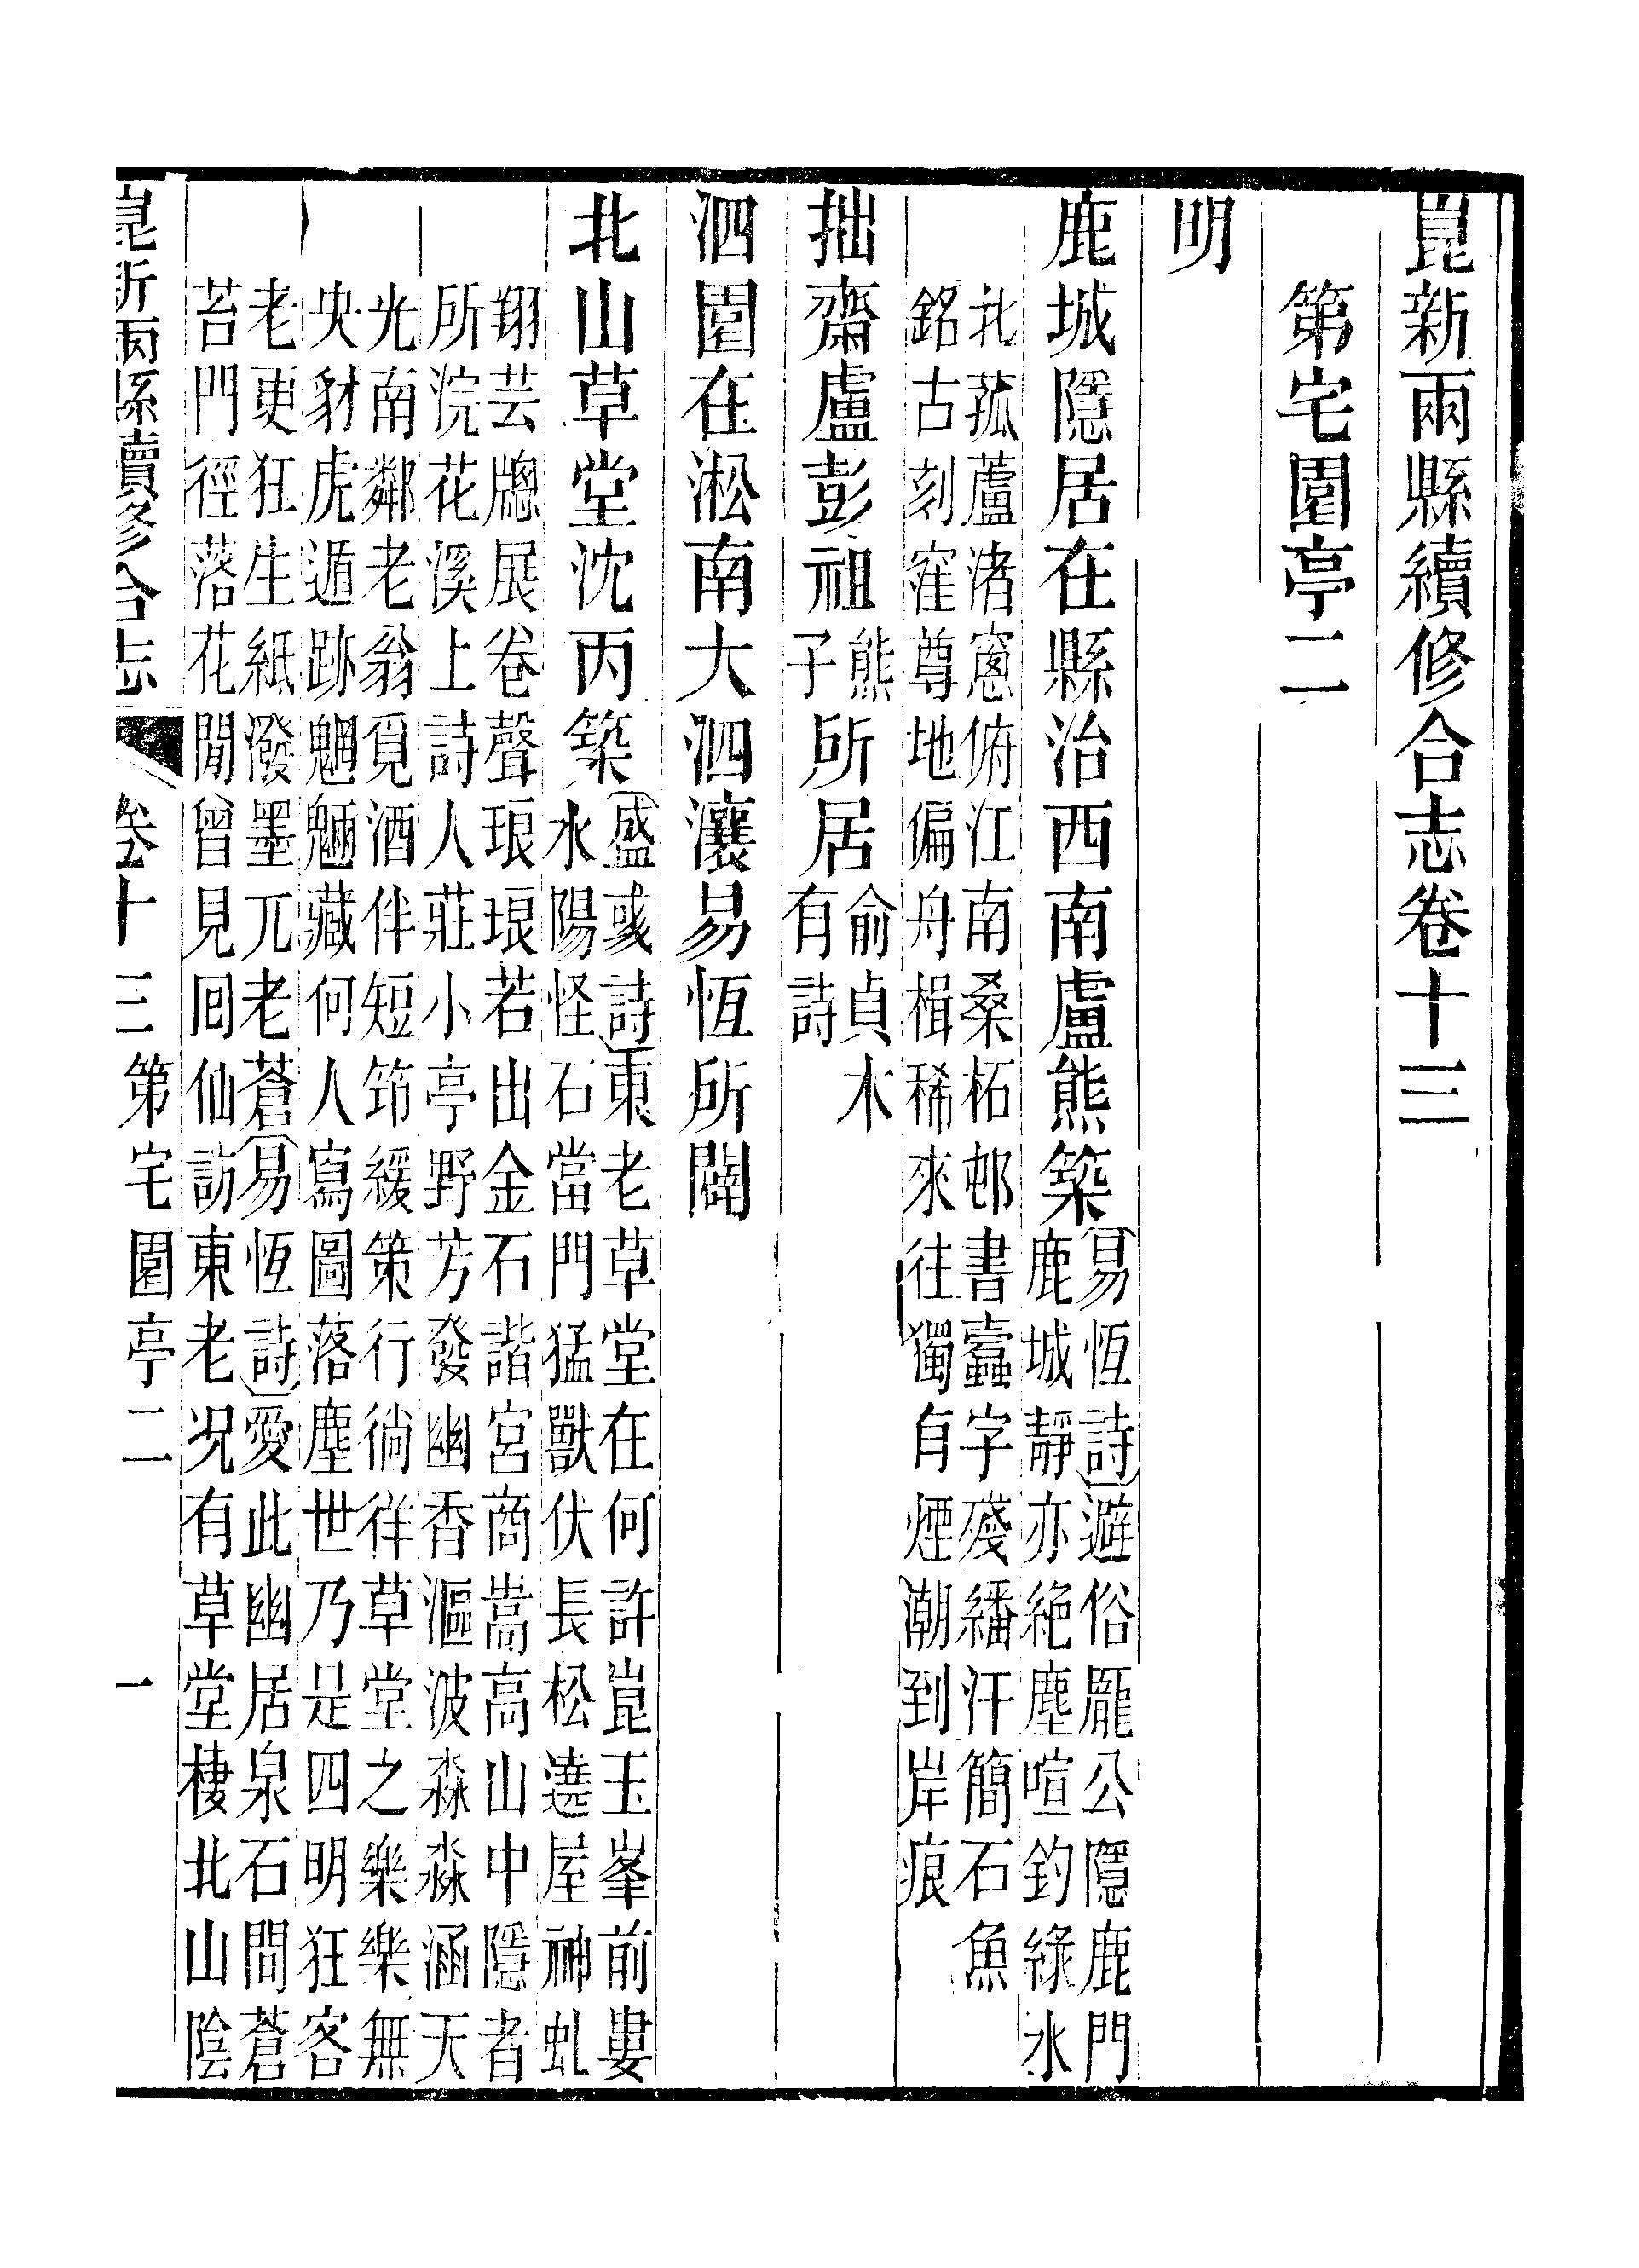 崑新兩縣續修合志卷十三
第宅園亭二
明
鹿城隱居在縣治西南盧熊築
易恆詩避俗龎公隱鹿門
鹿城靜亦絶塵喧釣綠水
北菰蘆渚窻俯江南桑柘邨書蠹字殘繙汗簡石魚
銘古刻窪尊地偏舟楫稀來往獨自煙潮到岸痕
拙齋盧彭祖熊子所居俞貞木有詩
泗園在淞南大泗瀼易恆所闢
北山草堂沈丙築
盛彧詩東老草堂在何許崑玉峯前婁
水陽怪石當門猛獸伏長松遶屋神虬
翔芸牕展卷聲琅琅若出金石諧宮商嵩高山中隱者
所浣花溪上詩人莊小亭野芳發幽香漚波淼淼涵天
光南鄰老翁覓酒伴短筇緩策行徜徉草堂之樂樂無
央豺虎遁跡魍魎藏何人寫圖落塵世乃是四明狂客
老更狂生紙潑墨兀老蒼易恆詩愛此幽居泉石間蒼
苔門徑落花閒曾見囘仙訪東老况有草堂棲北山陰
崑新兩縣續修合志 卷十三 第宅園亭二 一